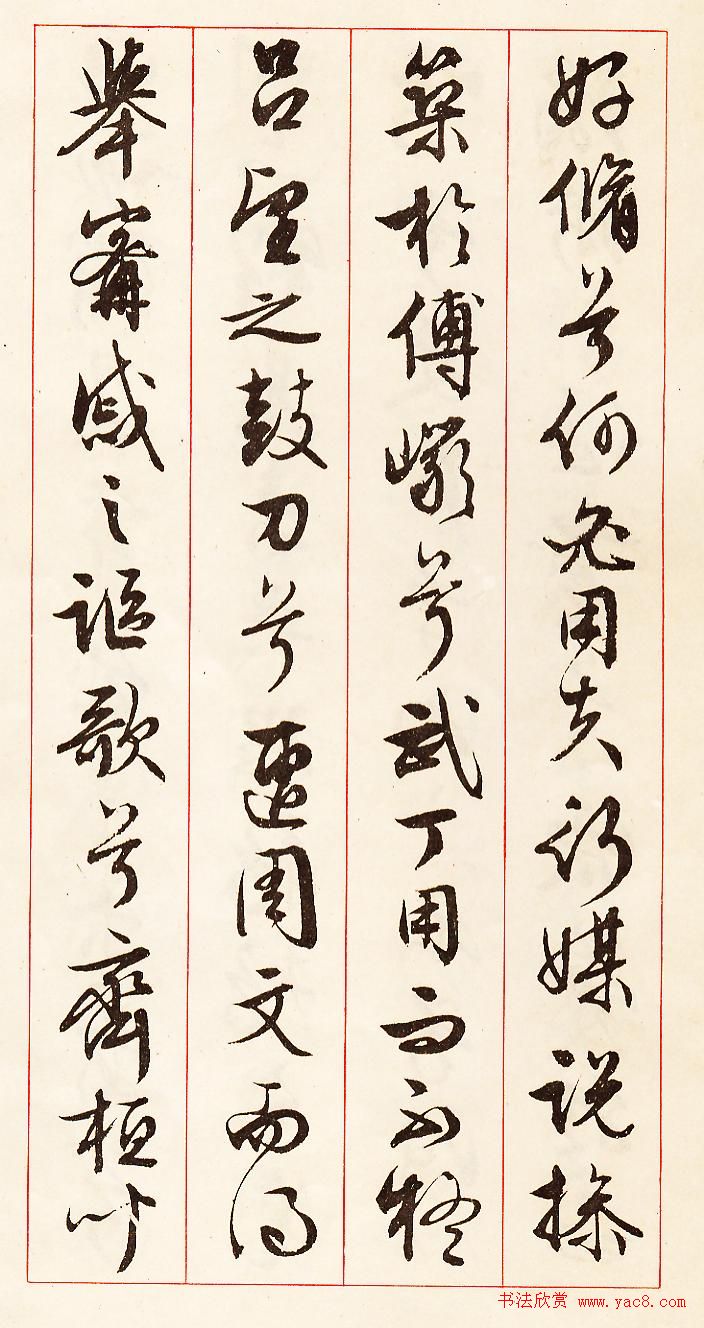 好脩兮何必用夫行媒説操
築於傅巖兮武丁用而不疑
吕望之鼓刀兮遭周文而得
舉甯戚之謳歌兮齊桓叶
书法欣赏 www.yac8.com